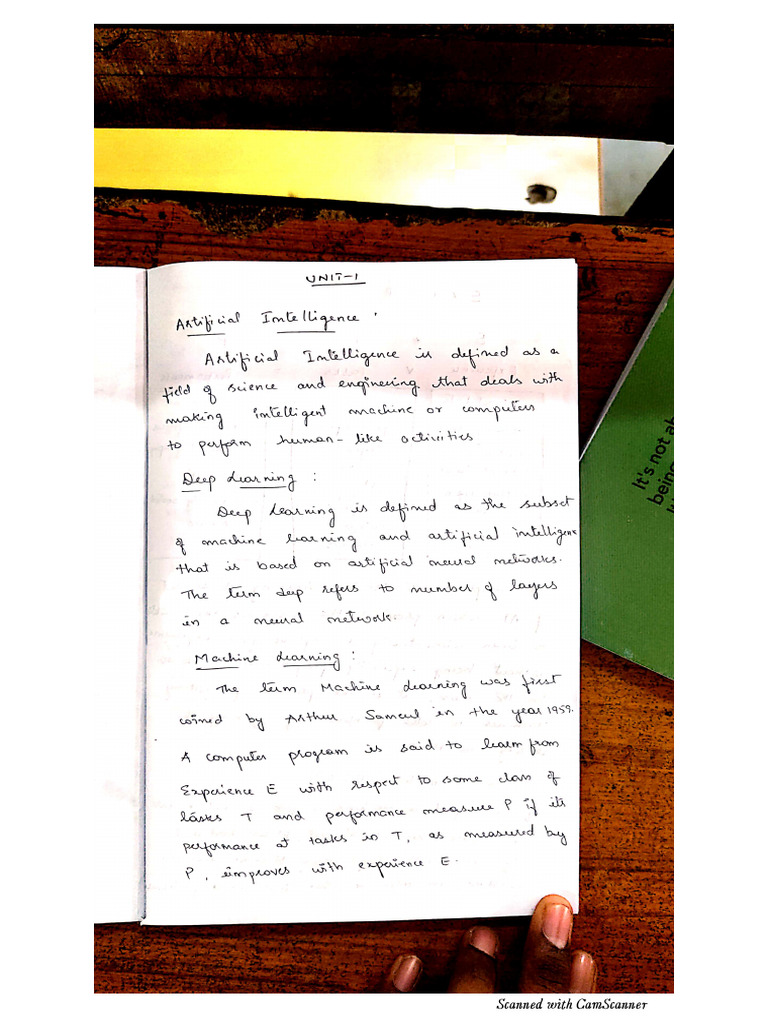 UNIT-1
Artificial Intelligence :
Artificial Intelligence is defined as a
field of science and engineering that deals with
making intelligent machine or computers
to perform human-like activities
Deep Learning :
Deep Learning is defined as the subset
of machine learning and artificial intelligence
that is based on artificial neural networks.
The term deep refers to number of layers
in a neural network.
Machine Learning :
The term Machine Learning was first
coined by Arthur Sameul in the year 1959.
A computer program is said to learn from
Experience E with respect to some class of
tasks T and performance measure P if its
performance at tasks in T, as measured by
P, improves with experience E.
It's not
being
Scanned with CamScanner